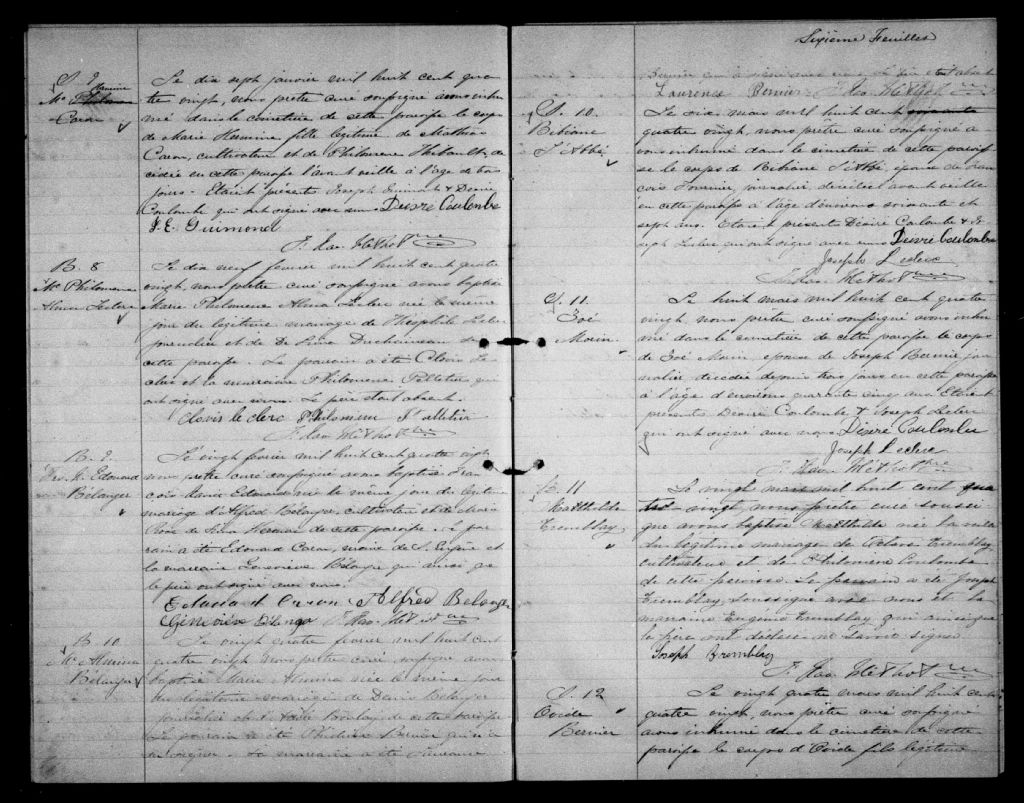 S. 7
Mie Hermine
Philomène
Caron
Le dix sept janvier mil huit cent qua
tre vingt, nous prêtre curé soussigné avons inhu
mé dans le cimetière de cette paroisse le corps
de Marie Hermine fille légitime de Mathias
Caron, cultivateur et de Philomène Thibault, dé
cédée en cette paroisse l'avant veille à l'âge de
jours. Etaient présents Joseph Guimont & Désiré
Coulombe qui ont signé avec nous Désiré Coulombe
J. E. Guimond
F. Xav Méthot Ptre
B. 8
Mie Philomène
Alma Leclerc
Le dix neuf février mil huit cent quatre
vingt, nous prêtre curé soussigné avons baptisé
Marie Philomène Alma Leclerc née le même
jour du légitime mariage de Théophile Leclerc
journalier et de Duchaineau de
cette paroisse. Le parrain a été Clovis Le
clerc et la marraine Philomène Pelletier qui
ont signé avec nous. Le père étant absent.
Clovis le clerc Philomene Pelletier
F. Xav Méthot Ptre
B. 9
Frs. X. Edouard
Bélanger
Le vingt février mil huit cent quatre vingt
nous prêtre curé soussigné avons baptisé Fran
çois Xavier Edouard né le même jour du légitime
mariage d'Alfred Bélanger, cultivateur et de Marie
de cette paroisse. Le par
rain a été Edouard Caron, maire de S. Eugène et
la marraine Geneviève Bélanger qui ainsi que
le père ont signé avec nous.
Edouard Caron Alfred Belanger
Geneviève Belanger F. Xav Méthot Ptre
B. 10
Mie Almina
Bélanger
Le vingt quatre février mil huit cent
quatre vingt nous prêtre curé soussigné avons
baptisé Marie Almina née le même jour
du légitime mariage de Bélanger
journalier et d' Boulay de cette paroisse
Le parrain a été Bernier qui n'a
La marraine a été Laurence
Sixième Feuillet
Bernier qui a signé avec nous. Le père étant absent
Laurence Bernier F. Xav Méthot Ptre
S. 10.
Bibiane
L'Abbé
Le six mars mil huit cent
quatre vingt, nous prêtre curé soussigné a
vons inhumé dans le cimetière de cette parois
se le corps de Bibiane L'Abbé, épouse de Fran
çois Fournier, journalier, décédée l'avant veille
en cette paroisse à l'âge d'environ soixante et
sept ans. Etaient présents Désiré Coulombe & Jo
seph Leclerc qui ont signé avec nous Désiré Coulombe
Joseph Leclerc
F. Xav Méthot Ptre
S. 11.
Zoé
Morin
Le huit mars mil huit cent quatre
vingt, nous prêtre curé soussigné avons inhu
mé dans le cimetière de cette paroisse le corps
de Zoé Morin, épouse de Joseph Bernier jour
nalier décédée depuis trois jours en cette paroisse
à l'âge d'environ quarante cinq ans. Etaient
présents Désiré Coulombe & Joseph Leclerc
qui ont signé avec nous Désiré Coulombe
Joseph Leclerc
F. Xav Méthot Ptre
B. 11
Mathilde
Tremblay
Le vingt mars mil huit cent qua
tre vingt, nous prêtre curé soussi
gné avons baptisé Mathilde née la veille
du légitime mariage de Octave Tremblay
cultivateur et de Philomène Coulombe
de cette paroisse. Le parrain a été Joseph
Tremblay, soussigné avec nous et la
marraine Eugénie Tremblay qui ainsi que
le père ont déclaré ne savoir signer.
Joseph Tremblay
F. Xav Méthot Ptre
S. 12
Ovide
Bernier
Le vingt quatre mars mil huit cent
quatre vingt, nous prêtre curé soussigné
avons inhumé dans le cimetière de cette
paroisse le corps d'Ovide fils légitime